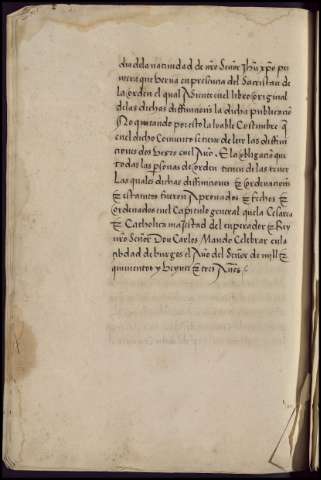 dia de la natiuidad de nro Señor Jhu xpo pri
mera que verna en presencia del Sacristan de
la orden el qual Asiente en el libro original
de las dichas diffiniciones la dicha publicacion
No quitando por esto la loable Costumbre q
en el dicho Conuento se tiene de leer las diffini
ciones dos vezes en el Año. E la obligacion que
todas las psonas de orden tienen de las tener
Las quales dichas diffiniciones & ordenaciones
& estatutos fueron Aprouados & fechos &
ordenados en el Capitulo general que la Cesarea
& Catholica magestad del emperador & Rey
nro Señor Don Carlos Mando Celebrar en la
cibdad de burgos el Año del Señor de mill &
quinientos y veynte & tres Años